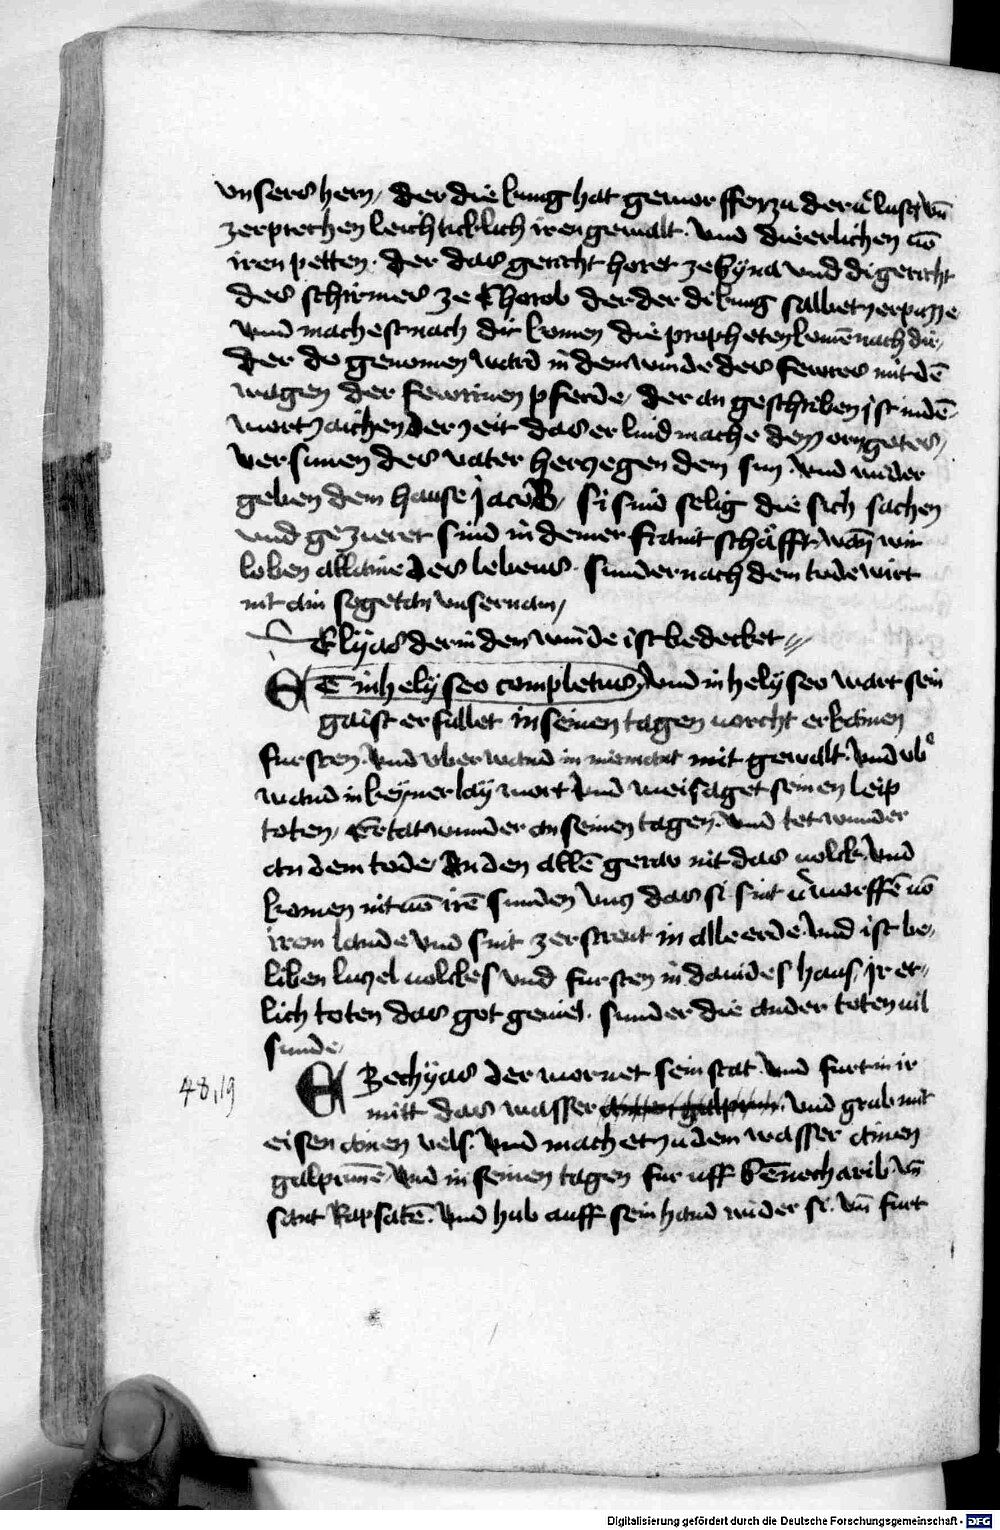 vnsers hern / der die kung hat geworffen zu der v̊lust vn̄
zerprechen leichticklich iren gewalt · vnd die erlichen vō
iren petten · der das gericht horet ze Syna vnd di gericht
des schirmes ze Choreb der der di kung salbet zer puzze
vnd machest nach dir komen die propheten komē nach dir /
der do genomen ward in dem winde des fewres mit dē
wagen der fewrinen pferde / der an geschriben ist in dē
wortzaichen der zeit das er lind mache den zorn gotes /
versunen des vater herze gen dem sun · vnd wider
geben dem hause jacob / si sind selig die sich sachen
vnd gezieret sind in deiner fraintschafft / wan wir
leben allaine des lebens · sunder nach dem tode wirt
nit ain sogetan vnser nam /
Elyas der in den winde ist bedecket //
ET in helyseo completus / vnd in helyseo wart sein
gaist erfullet in seinen tagen vorcht er kainen
fursten · vnd vberwand in niemant mit gewalt · vnd vb̊
wand in keynerlay wort vnd weisaget seinen leip
toten / Er tat wunder an seinen tagen · vnd tet wunder
an dem tode / An den allē geraw nit das volck · vnd
komen nit vō irē sunden vnz das si sint v̊worffē vō
irem lande vnd sint zerstreut in alle erde · vnd ist be /
liben luzel volckes vnd fursten in dauides haus / Ir et /
lich toten das got geviel · sunder die ander toten vil
sunde /
48,19
EZechyas der wornet sein stat · vnd furt in ir
mitt das wasser · vnd grub mit
eisen ainen vels · vnd machet zu dem wasser ainen
galprunē / vnd in seinen tagen fur uff Sēnecharib · vn̄
sant Rapsatē · vnd hub auff sein hand wider si · vn̄ furt
Digitalisierung gefördert durch die Deutsche Forschungsgemeinschaft - DFG